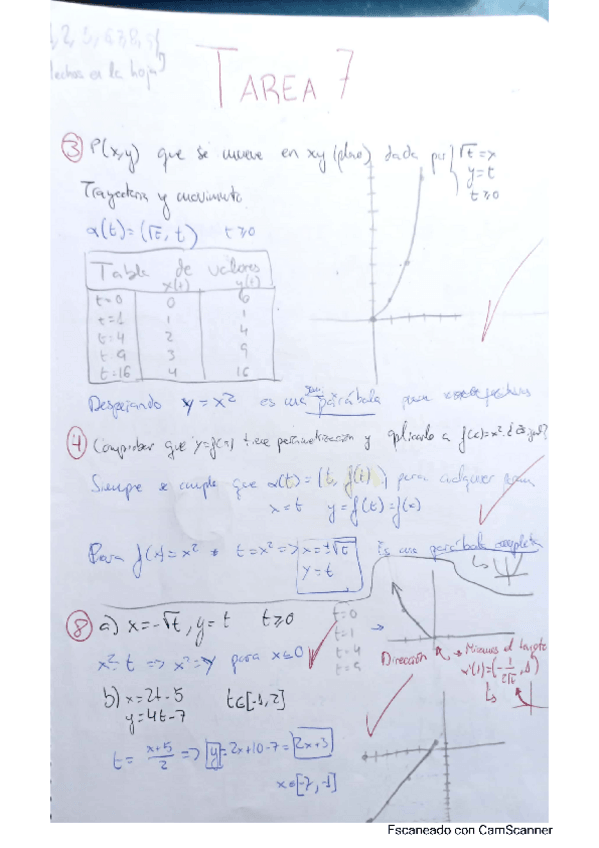 TAREA 7
hechos en la hoja
③ P(x,y) que se mueve en xy (plano) dada por { √t = x
y = t
t ≥ 0
Trayectoria y movimiento
α(t) = (√t, t) t ≥ 0
Tabla de valores
x(t) y(t)
t=0 0 0
t=1 1 1
t=4 2 4
t=9 3 9
t=16 4 16
Despejando y = x² es una parábola para
④ Comprobar que y=f(x) tiene parametrización y aplicarlo a f(x)=x².
Siempre se cumple que α(t) = (t, f(t)) para cualquier
x = t y = f(t) = f(x)
Para f(x) = x² t = x² => x = ±√t Es una parábola completa
y = t
⑧ a) x = -√t, y = t t ≥ 0
t=0
t=1
t=4
t=9
x² = t => x² = y para x ≤ 0
Dirección Miramos el
α'(1) = (-1/2√t, 1)
b) x = 2t - 5 t ∈ [-1, 2]
y = 4t - 7
t = x+5/2 => y = 2x+10-7 = 2x+3
x ∈ [-7, -1]
Escaneado con CamScanner